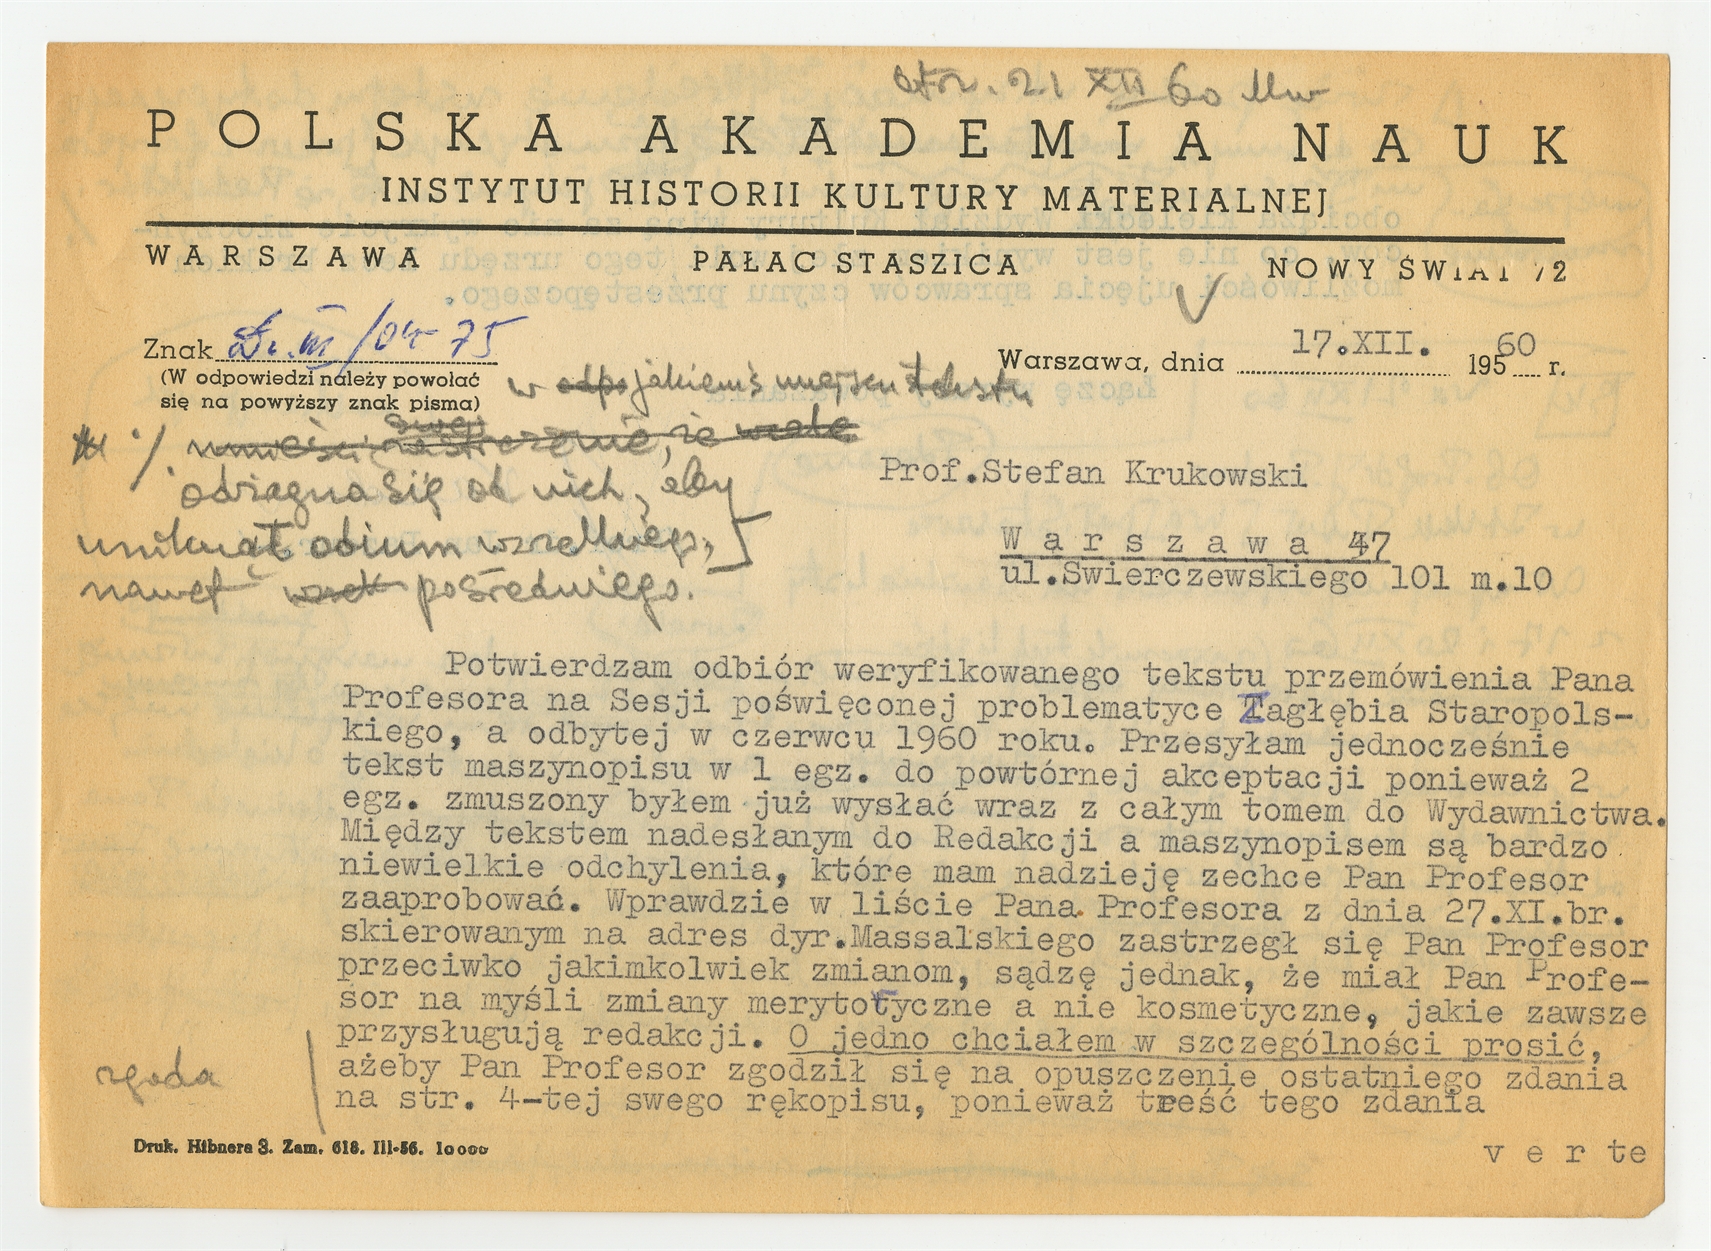 otrz. 21 XII 60
POLSKA AKADEMIA NAUK
INSTYTUT HISTORII KULTURY MATERIALNEJ
WARSZAWA PAŁAC STASZICA NOWY ŚWIAT 72
Znak Dz. III/04 75
Warszawa, dnia 17.XII. 1950 60 r.
(W odpowiedzi należy powołać
się na powyższy znak pisma)
w jakiemś miejscu tekstu
swoje
umieści zastrzeżenie, że
odżegna się od nich, aby
uniknąć odium wszelkiego,
nawet pośredniego.
Prof.Stefan Krukowski
W a r s z a w a 47
ul.Swierczewskiego 101 m.10
Potwierdzam odbiór weryfikowanego tekstu przemówienia Pana
Profesora na Sesji poświęconej problematyce Zagłębia Staropols-
kiego, a odbytej w czerwcu 1960 roku. Przesyłam jednocześnie
tekst maszynopisu w 1 egz. do powtórnej akceptacji ponieważ 2
egz. zmuszony byłem już wysłać wraz z całym tomem do Wydawnictwa.
Między tekstem nadesłanym do Redakcji a maszynopisem są bardzo
niewielkie odchylenia, które mam nadzieję zechce Pan Profesor
zaaprobować. Wprawdzie w liście Pana Profesora z dnia 27.XI.br.
skierowanym na adres dyr.Massalskiego zastrzegł się Pan Profesor
przeciwko jakimkolwiek zmianom, sądzę jednak, że miał Pan Profe-
sor na myśli zmiany merytotyczne a nie kosmetyczne, jakie zawsze
przysługują redakcji. O jedno chciałem w szczególności prosić,
ażeby Pan Profesor zgodził się na opuszczenie ostatniego zdania
zgoda
na str. 4-tej swego rękopisu, ponieważ treść tego zdania
Druk. Hibnera 3. Zam. 618. III-56. 10000
v e r t e